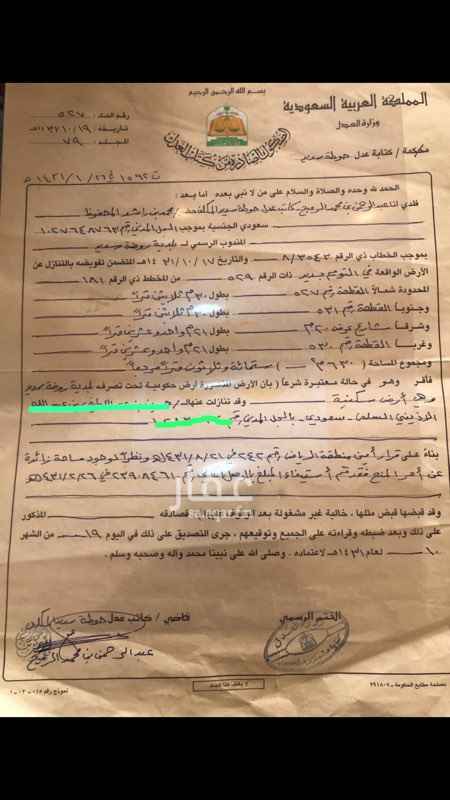 بسم الله الرحمن الرحيم
المملكة العربية السعودية
وزارة العدل
محكمة / كتابة عدل حوطة سدير
رقم الصك : ٥٢٧
تاريخه : ١٤٣١/١٠/١٩هـ
المجلد : ٧٩
الحمد لله وحده والصلاة والسلام على من لا نبي بعده أما بعد :
لدي أنا عبدالرحمن بن محمد كاتب عدل حوطة سدير المكلف محمد بن راشد المحفوظ
سعودي الجنسية بموجب السجل المدني رقم ١٠٢٧٦٤٨٧٦٣
المندوب الرسمي لـ بلدية روضة سدير
بموجب الخطاب ذي الرقم ٨/٣٥٤٣ والتاريخ ١٤٣١/١٠/١٧هـ المتضمن تفويضه بالتنازل عن
الأرض الواقعة في التويم جديد ذات الرقم ٥٢٩ من المخطط ذي الرقم ٦٨١
المحدودة شمالاً القطعة رقم ٥٢٧ بطول ٣٠م ثلاثين متراً
وجنوبا القطعة رقم ٥٣١ بطول ٣٠م ثلاثين متراً
وشرقا شارع عرض ٢٠م بطول ٢١م واحد وعشرين متراً
وغربا القطعة رقم ٥٣٠ بطول ٢١م واحد وعشرين متراً
ومجموع المساحة (٦٣٠م) ستمائة وثلاثون متراً مربعاً
فأقر وهو في حالة معتبرة شرعاً ( بأن الأرض المذكورة أرض حكومية تحت تصرف بلدية روضة سدير
وهي أرض سكنية وقد تنازلت عنها لـ
سعودي بالسجل المدني رقم
بناء على قرار أمين منطقة الرياض رقم ٢٤٢ في ١٤٣١/٨/٢١هـ ونظراً لوجود مساحة زائدة
عن أمر المنح فقد تم استيفاء المبلغ بالإيصال رقم ٢٣٩٠٨٤٦١ في ١٤٣١/٢/٢٦هـ
عقار
وقد قبضها قبض مثلها ، خالية غير مشغولة بعد الوقوف عليها ) فصادقه المذكور
على ذلك وبعد ضبطه وقراءته على الجميع وتوقيعهم ، جرى التصديق على ذلك في اليوم ١٩ من الشهر
١٠ لعام ١٤٣١هـ لاعتماده . وصلى الله على نبينا محمد وآله وصحبه وسلم .
الختم الرسمي
قاضي / كاتب عدل حوطة سدير المكلف
عبدالرحمن بن محمد
مطبعة مصانع الحكومة - ٣٩١٨٠٧